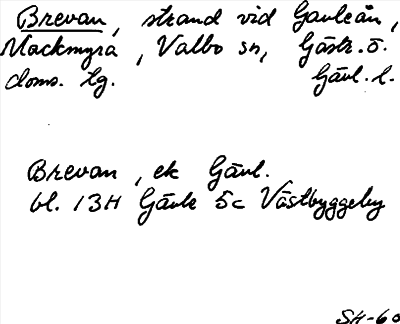 Brevan, strand vid Gavleån,
Mackmyra, Valbo sn, Gästr. ö.
doms. lg. Gävl. l.
Brevan, ek Gävl.
bl. 13H Gävle 5c Västbyggeby
SH-60